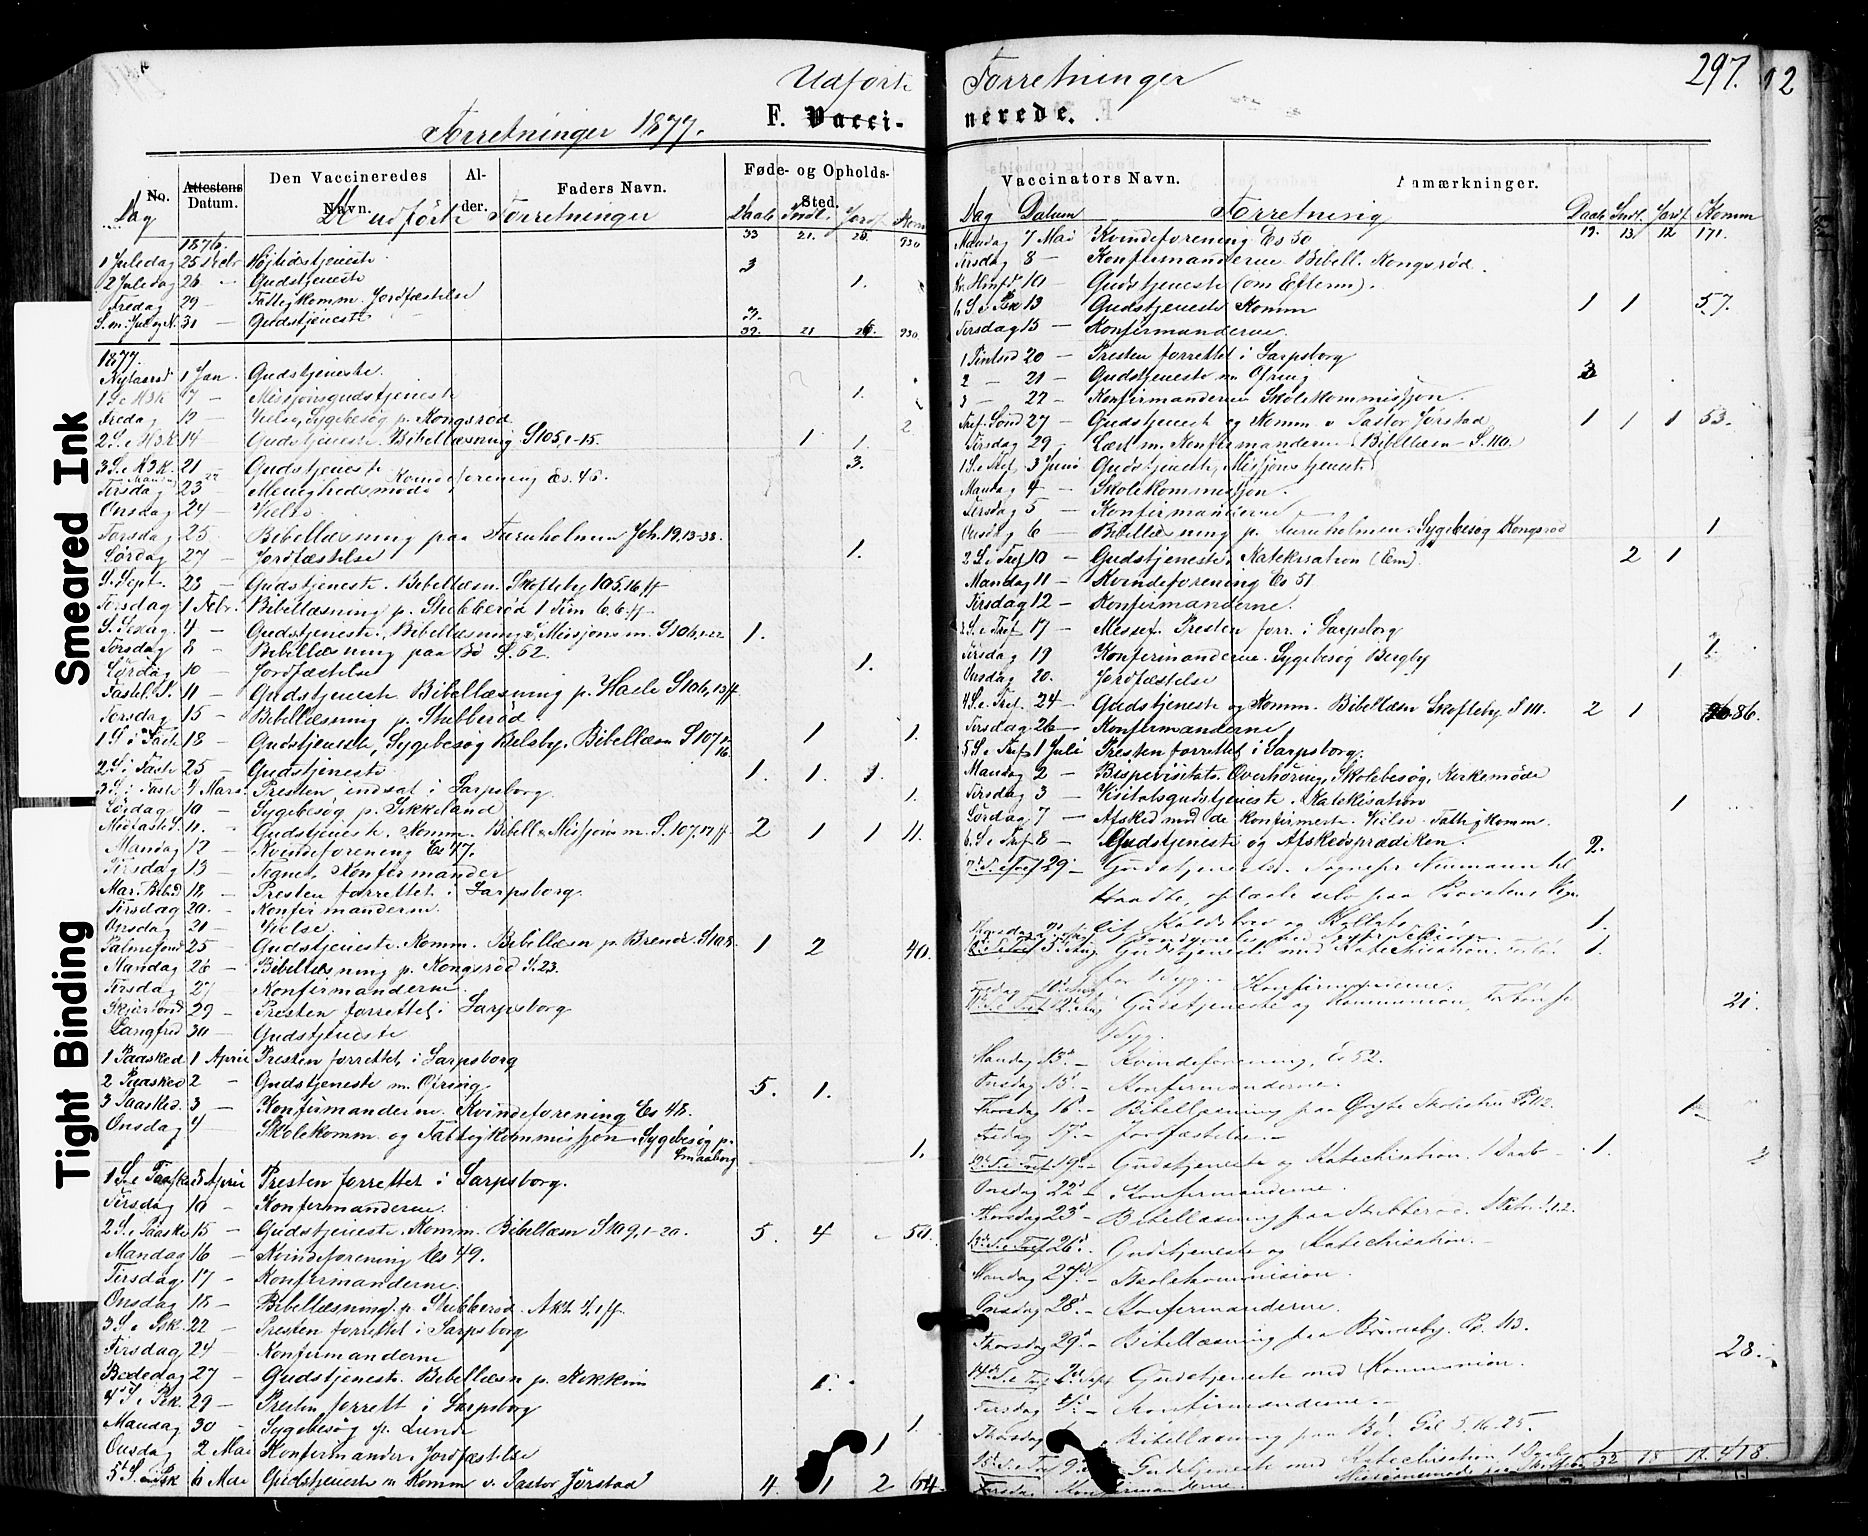 Smeared Ink
Tight Binding
Udførte Forretninger
297.
12
Forretninger 1877.
F. Vacci-
nerede.
No.
Attestens Datum.
Den Vaccineredes Navn.
Al-der.
Faders Navn.
Føde- og Opholds-Sted.
Dag
udførte Forretninger
Daab Indl. Jordf. Kom
33 21. 930
1876.
1 Juledag 25 Dcbr Høitidstjeneste 3
2 Juledag 26 - Gudstjeneste 1.
Fredag 29 - Fattigkomm. Jordfæstelse
S. m. Jul og N. 31 - Gudstjeneste
1877.
Nytaarsd 1 Jan. Gudstjeneste.
1 S. e. H3K 7 - Missjonsgudstjeneste 1.
Fredag 12 - Vielse, Sygebesøg p. Kongsrød 2
2 S. e. H3K 14 - Gudstjeneste. Bibellæsning S 105,1-15. 1 1.
3 S. e. H3K. 21 - Gudstjeneste 3.
Mandag 22 Kvindeforening Es. 46.
Tirsdag 23 - Menighedsmøde
Onsdag 24 - Vielse
Torsdag 25 Bibellæsning paa Furuholmen Joh. 19,13-38.
Lørdag 27 - Jordfæstelse 1.
S. Sept. 28 - Gudstjeneste. Bibellæsn. Skofteby 105,16 ff
Torsdag 1 Febr. Bibellæsning p. Stubberød 1 Tim 6,6 ff
S. Sexag. 4 - Gudstjeneste. Bibellæsning, Missjons m. S 106,1-22 1.
Torsdag 8 - Bibellæsning paa Bø S. 52.
Lørdag 10 - Jordfæstelse 1.
Fastel. S. 11 - Gudstjeneste Bibellæsning p. Haele S 106,13 ff
Torsdag 15 - Bibellæsning p. Stubberød.
1 S i Faste 18 - Gudstjeneste, Sygebesøg Bielsby. Bibellæsn S 107,1-16 1 1.
2 S. i Faste 25 - Gudstjeneste 1. 1. 1.
3 S. i Faste 4 Mars. Presten indsat i Sarpsborg.
Lørdag 10 - Sygebesøg p. Sikkeland 1.
Midfaste S. 11. - Gudstjeneste. Komm. Bibell & Missjons m. S. 107,17 ff 2 1 1 11.
Mandag 12 - Kvindeforening Es 47.
Tirsdag 13 - Konfirmander
Mar. Beb.d 18 - Presten forrettet i Sarpsborg.
Tirsdag 20. - Konfirmanderne.
Onsdag 21 - Vielse.
Palmesønd 25 - Gudstjeneste. Komm. Bibellæsn p. Brende S 108 1 2 40.
Mandag 26 - Bibellæsning p. Kongsrød S. 23.
Tirsdag 27 - Konfirmanderne
Skjærtorsd 29 - Presten forrettet i Sarpsborg
Langfred 30 - Gudstjeneste
1 Paasked 1 April Presten forrettet i Sarpsborg
2 Paasked 2 - Gudstjeneste m. Ofring 5. 1.
3 Paasked. 3 - Konfirmanderne. Kvindeforening Es 48.
Onsdag 4 - Skolekomm. og Fattigkommissjon. Sygebesøg p. Smaaborg 1.
1 S. e. Paaske 8 April Presten forrettet i Sarpsborg.
Tirsdag 10 - Konfirmanderne.
2 S. e. Paaske 15 - Gudstjeneste. Komm. Bibellæsn S 109,1-20. 5. 4 50.
Mandag 16 - Kvindeforening Es 49.
Tirsdag 17 - Konfirmanderne.
Onsdag 18 - Bibellæsning p. Stubberød.
3 S. e. Psk. 22 - Presten forrettet i Sarpsborg
Tirsdag 24 - Konfirmanderne
Bededag 27 - Gudstjeneste. Bibellæsn p. 1.
4 S. e. Psk. 29 - Presten forrett i Sarpsborg
Mandag 30 - Sygebesøg p. Lunde 1.
Onsdag 2 Mai Konfirmander. Jordfæstelse 1
5 S. e. Psk 6 Mai Gudstjeneste m Komm v. Pastor Jørstad 4. 1 2 64.
Vaccinators Navn.
Anmærkninger.
Dag Datum Forretning Daab Indl. Jordf Komm
19. 13. 12 171.
Mandag 7 Mai Kvindeforening Es 50
Tirsdag 8 - Konfirmanderne Bibell. Kongsrød.
Kr. Himf. 10 - Gudstjeneste (om Efterm).
6 S. e. Psk 13 Gudstjeneste Komm 1 1 57.
Tirsdag 15 - Konfirmanderne.
1 Pintsed 20 - Presten forrettet i Sarpsborg
2 - 21 - Gudstjeneste m Ofring 3
3 - 22 - Konfirmanderne Skolekommissjon.
Tref. Sønd 27 - Gudstjeneste og Komm. v Pastor Jørstad 1 1 1 53.
Tirsdag 29 - m. Konfirmanderne Bibellæsn S. 110.
1 S. e Tref. 3 Juni Gudstjeneste, Missjonstjeneste
Mandag 4 - Skolekommissjon.
Tirsdag 5 - Konfirmanderne
Onsdag 6 - Bibellæsning p. Furuholmen. Sygebesøg Kongsrød 1
2 S. e Tref 10 - Gudstjeneste. Katekisation (Em). 2 1
Mandag 11 - Kvindeforening Es 51
Tirsdag 12 - Konfirmanderne.
3 S. e Tref 17 - Messef. Presten forr. i Sarpsborg
Tirsdag 19 Konfirmanderne. Sygebesøg Bergby
Onsdag 20. Jordfæstelse 1
4 S. e. Tref. 24 - Gudstjeneste og Komm. Bibellæsn Skofteby S 111. 2 1 86.
Tirsdag 26 - Konfirmanderne
5 S. e Tref 1 Juli Presten forrettet i Sarpsborg.
Mandag 2 - Bispevisitats. Overhøring, Skolebesøg, Kirkemøde
Tirsdag 3 - Visitatsgudstjeneste. Katekisation
Lørdag 7 - Afsked med de konfirmerte. Vielse. Fattigkomm. 1
6 S. e Tref 8 - Gudstjeneste og Afskedsprædiken. 2.
29 - Gudstjeneste. Sogneprest Neumann
1.
Gudstjeneste med Katechisation. 1.
Fredag Konfirmanterne.
12 Aug Gudstjeneste og Kommunion, 21.
Mandag 13 - Kvindeforening, Es 52.
Onsdag 15 - Konfirmanderne.
Thorsdag 16 - Bibellæsning paa 1
Fredag 17 - Jordfæstelse. -
19 - Gudstjeneste og Katechisation. 1 Daab 1.
Onsdag 22 - Konfirmanderne.
Thorsdag 23 Bibellæsning paa Stubberød.
13 S. e Tref 26. - Gudstjeneste og Katechisation. -
Mandag 27 - Skolekommision.
Onsdag 28. - Konfirmanderne.
Thorsdag 29 - Bibellæsning paa Brunsby. Ps. 113.
14 S. e Tref 2 Sept Gudstjeneste med Kommunion. 28.
Tirsdag 4 - Konfirmanderne. -
Thorsdag Bibellæsning paa Bø. Gal 5.16-25.
15 S. e Tref 9 Gudstjeneste med Katechisation. 1 Daab 1
Missionsmøde paa 418.
Tirsdag Konfirmanderne.